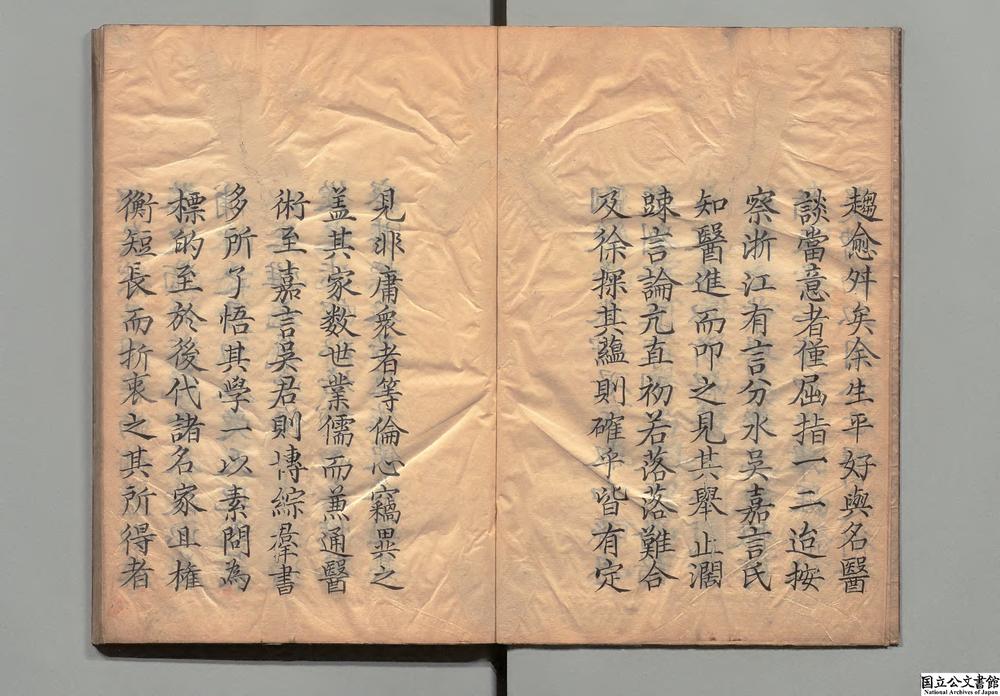 趨愈舛矣余生平好與名醫
談當意者僅屈指一二迨按
察浙江有言分水吳嘉言氏
知醫進而叩之見其舉止濶
踈言論亢直初若落落難合
及徐探其蘊則確乎皆有定
見非庸衆者等倫心竊異之
盖其家数世業儒而蕪通醫
術至嘉言吳君則博綜羣書
多所了悟其學一以素問為
標的至於後代諸名家且權
衡短長而折衷之其所得者
国立公文書館
National Archives of Japan